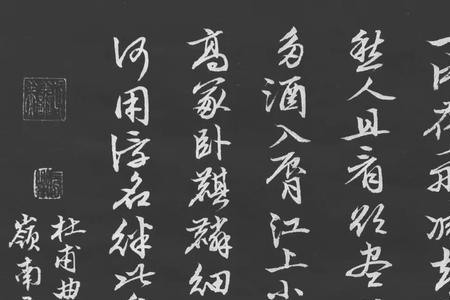 一片花飛減却
愁人且看欲盡
多酒入脣江上小
高冢卧麒麟細
何用浮名絆此
杜甫曲
嶺南